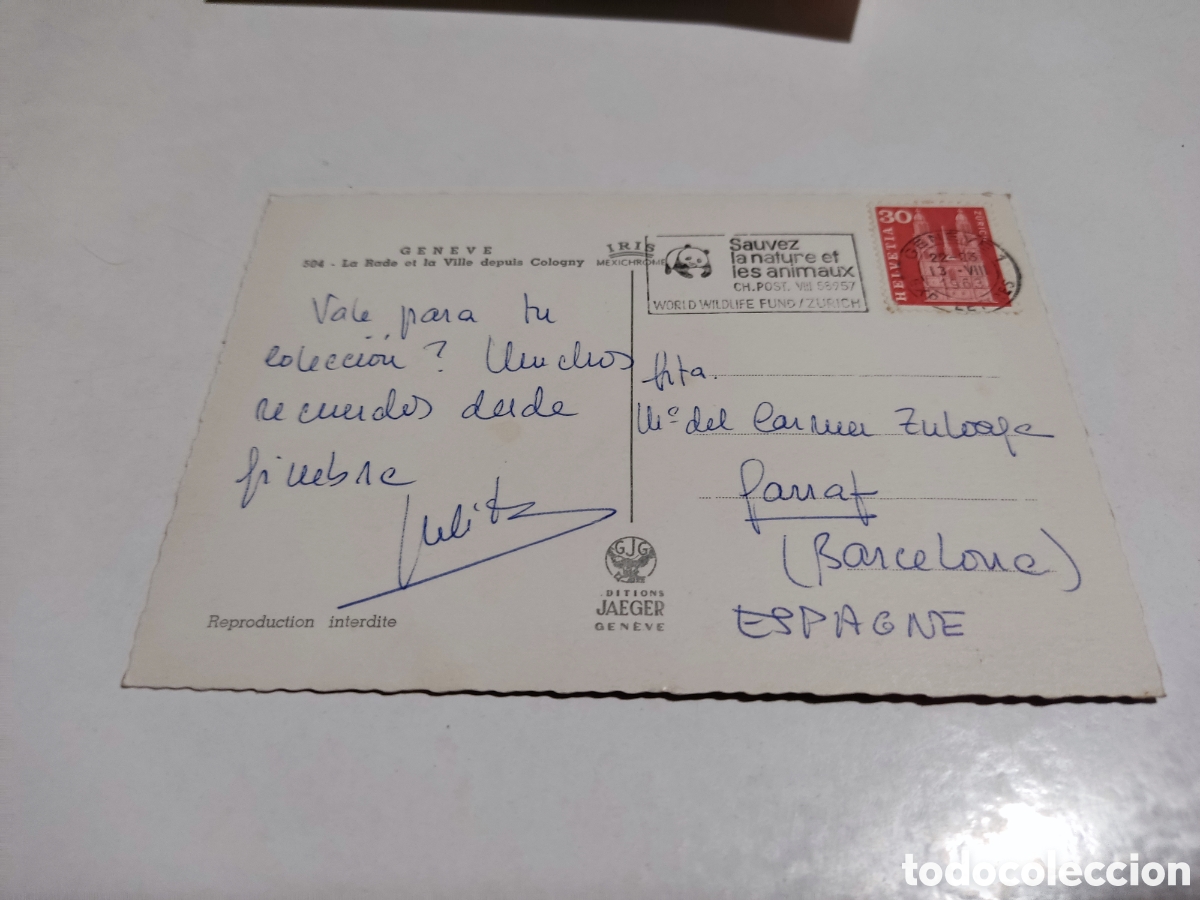 GENEVE
504 - La Rade et la Ville depuis Cologny
IRIS
MEXICHROME
Vale para tu
colección? Muchos
recuerdos desde
Ginebra
Julita
Reproduction interdite
Sauvez
la nature et
les animaux
CH. POST. VIII 58957
WORLD WILDLIFE FUND / ZÜRICH
HELVETIA 30
ZÜRICH
22-23
13.-VIII
Srta.
Mª del Carmen Zuloaga
Garraf
(Barcelona)
ESPAGNE
GJG
EDITIONS
JAEGER
GENÈVE
todocoleccion